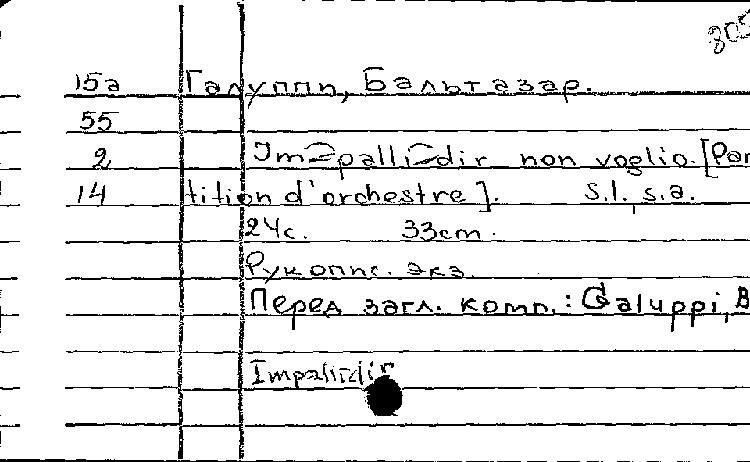 805
15а Галуппи, Бальтазар.
55
2 Impallidir non voglio. [Par
14 tition d'orchestre]. S.l., s.a.
24с. 33cm.
Рукопис. экз.
Перед загл. комп.: Galuppi, B
Impalidir